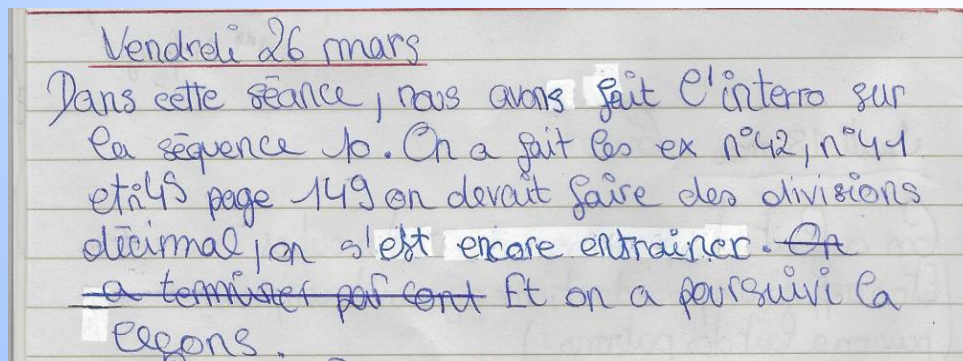 Vendredi 26 mars
Dans cette séance, nous avons fait l'interro sur
la séquence 10. On a fait les ex n°42, n°41
et n°45 page 149 on devait faire des divisions
décimal, on s'est encore entrainer. On
a terminer par cont Et on a poursuivi la
leçons.